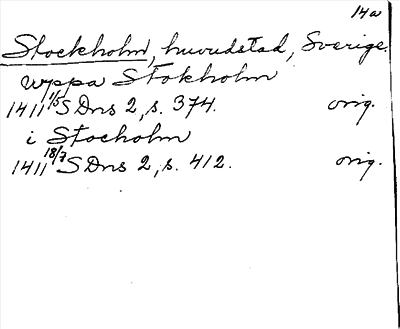 14a
Stockholm, huvudstad, Sverige.
uppa Stokholm
1411 1/5 S Dns 2, s. 374. orig.
i Stocholm
1411 18/7 S Dns 2, s. 412. orig.